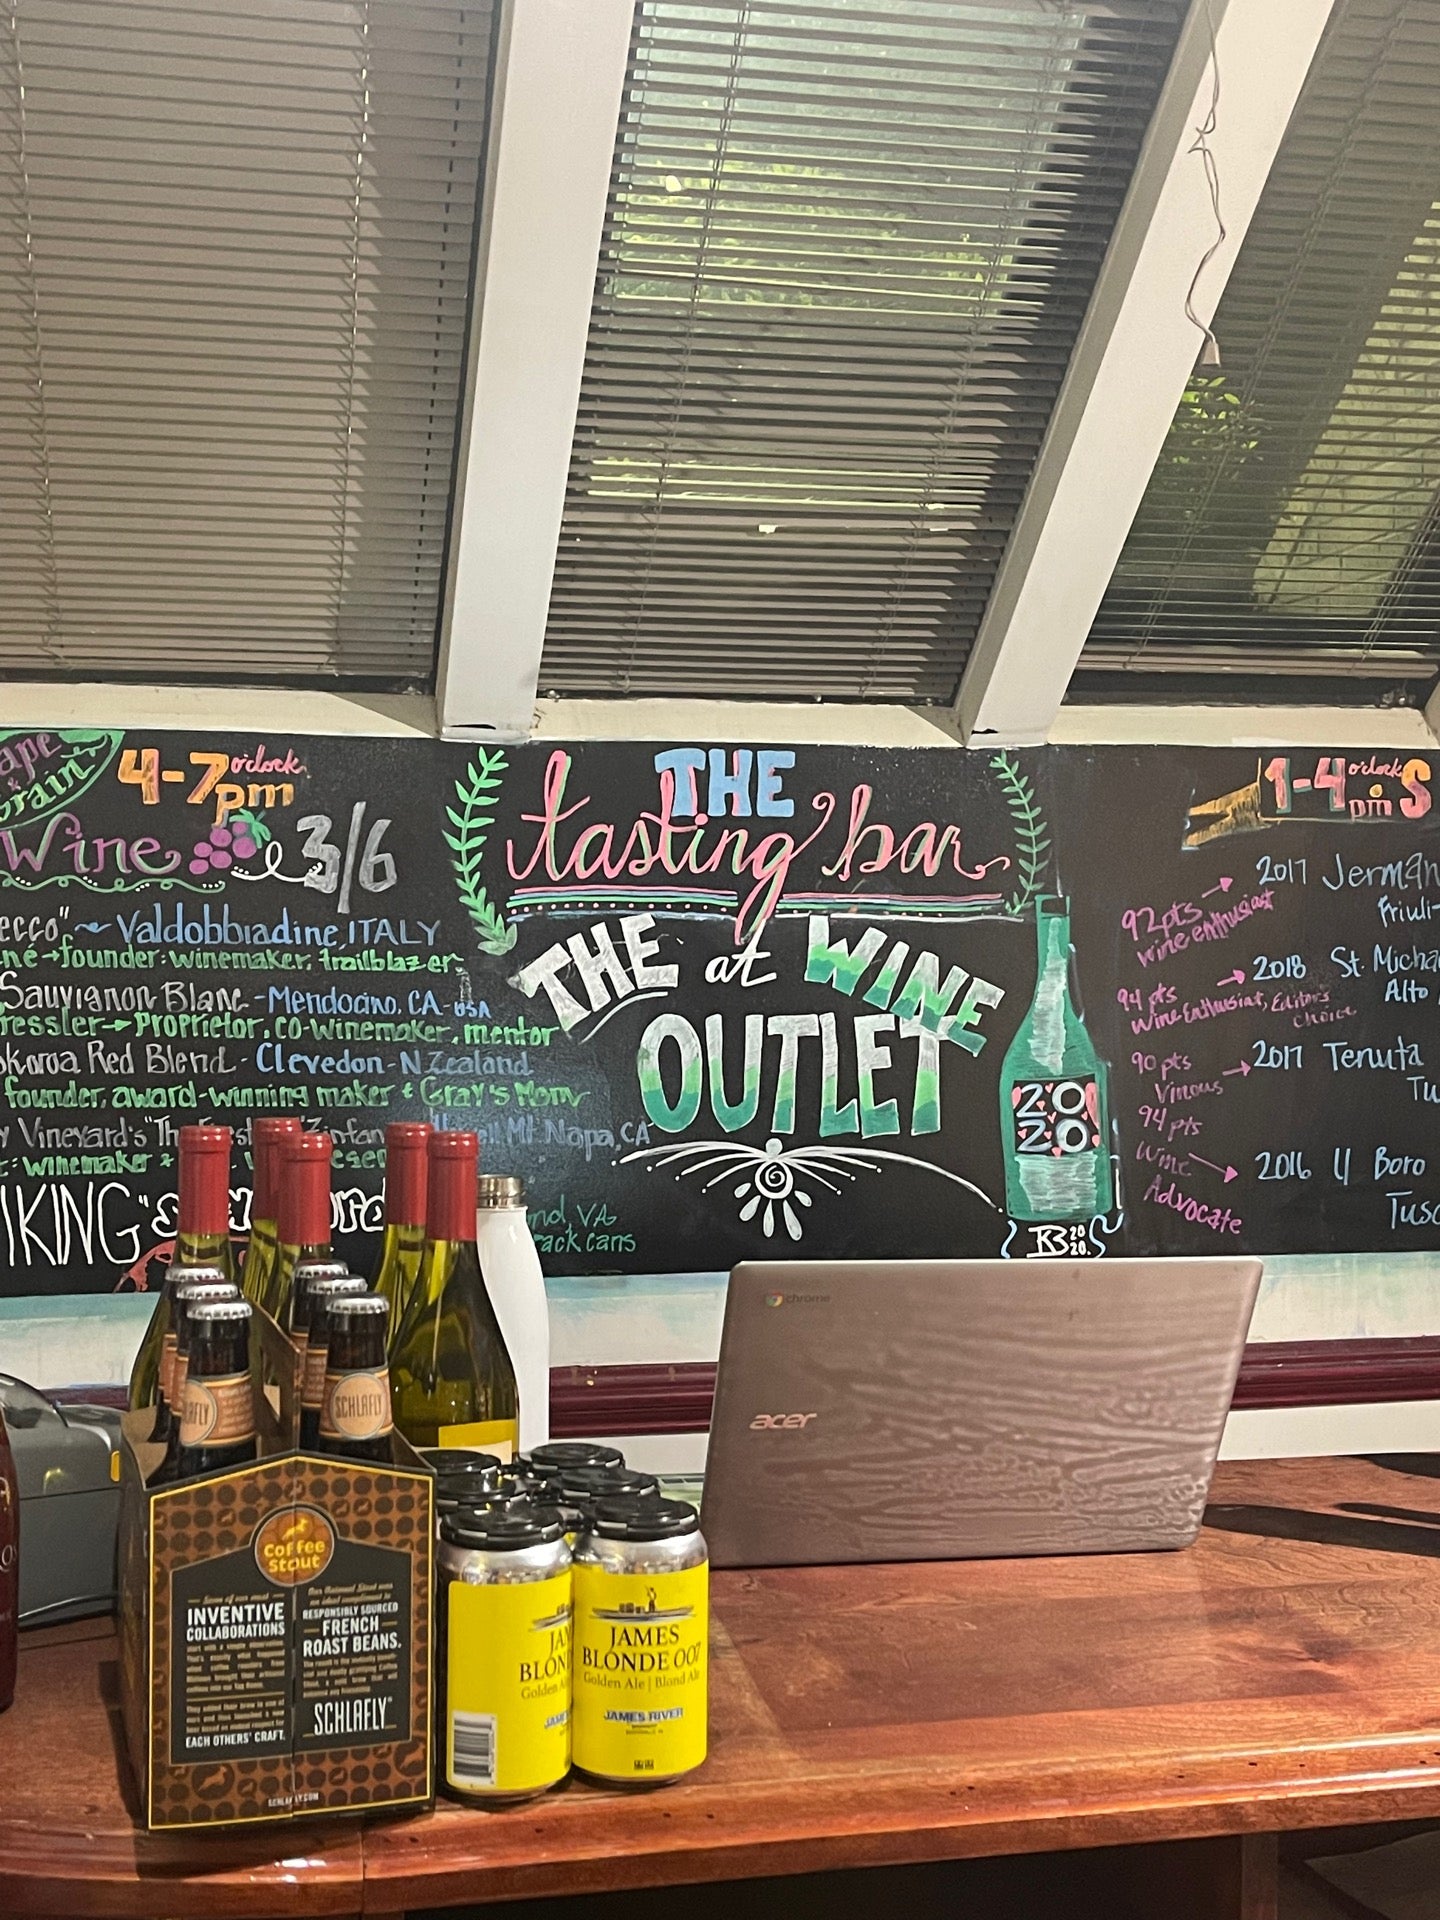 4-7 o'clock pm
Wine 3/6
ecco" ~ Valdobbiadine, ITALY
founder: winemaker, trailblazer
Sauvignon Blanc - Mendocino, CA - USA
ressler → Proprietor, co-winemaker, mentor
Red Blend - Clevedon - N Zealand
founder, award-winning maker & Gray's Mom
Vineyard's Napa, CA
winemaker
IKING"
nd, VA
ack cans
THE
tasting bar
THE at WINE
OUTLET
20
20
RB 20
20.
1-4 o'clock pm S
92 pts
wine enthusiast
2017 Jerman
Friuli-
94 pts
Wine Enthusiast, Editor's
choice
2018 St. Micha
Alto
90 pts
Vinous
2017 Tenuta
Tu
94 pts
Wine
Advocate
2016 Il Boro
Tusc
chrome
acer
SCHLAFLY
Coffee
Stout
Some of our most
INVENTIVE
COLLABORATIONS
EACH OTHERS' CRAFT.
RESPONSIBLY SOURCED
FRENCH
ROAST BEANS.
SCHLAFLY
SCHLAFLY.COM
JAMES
BLONDE 007
Golden Ale | Blond Ale
JAMES RIVER
JAM
BLOND
Golden
JAMES